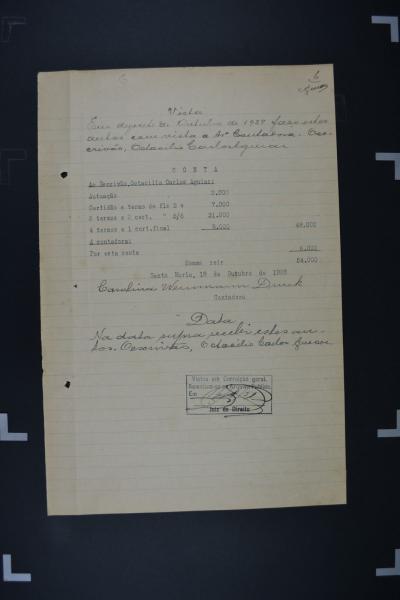 6
Vista
Em dezoito de Outubro de 1937 faço estes
autos com vista a Srª Contadora. O es-
crivão, Octacilio Carlos Aguiar
C O N T A
Ao Escrivão, Octacilio Carlos Aguiar:
Autuação 2.000
Certidão e termo de fls 2 v 7.000
3 termos e 2 cert. " 5/6 31.000
4 termos e 1 cert. final 8.000 48.000
A contadora:
Por esta conta 6.000
Somma reis 54.000
Santa Maria, 18 de Outubro de
Carolina Weinmann Druck
Contadora
Data
Na data supra recebi estes au-
tos. O escrivão, Octacilio Carlos Aguiar
Vistos em Correição geral.
Remettam-se ao Archivo Publico.
Em
Juiz de Direito